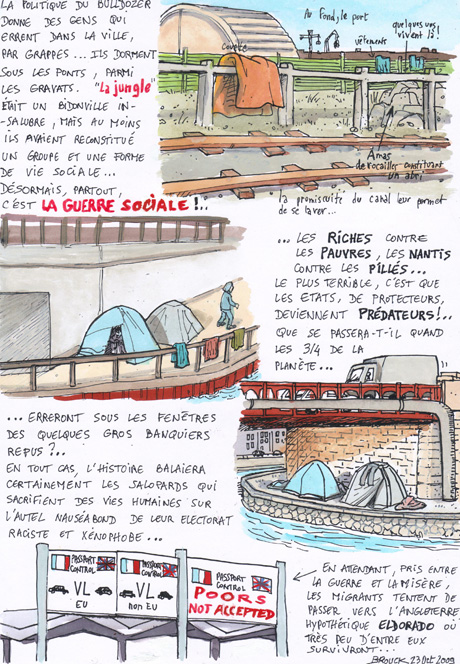 LA POLITIQUE DU BULLDOZER
DONNE DES GENS QUI
ERRENT DANS LA VILLE,
PAR GRAPPES... ILS DORMENT
SOUS LES PONTS, PARMI
LES GRAVATS. "La jungle"
ÉTAIT UN BIDONVILLE IN-
-SALUBRE, MAIS AU MOINS
ILS AVAIENT RECONSTITUÉ
UN GROUPE ET UNE FORME
DE VIE SOCIALE...
DÉSORMAIS, PARTOUT,
C'EST LA GUERRE SOCIALE!..
Au fond, le port
quelques uns
vivent là!
vêtements
couette
Amas
de rocailles constituant
un abri
la promiscuité du canal leur permet
de se laver...
... LES RICHES CONTRE
LES PAUVRES, LES NANTIS
CONTRE LES PILLÉS...
LE PLUS TERRIBLE, C'EST QUE
LES ETATS, DE PROTECTEURS,
DEVIENNENT PRÉDATEURS!..
QUE SE PASSERA-T-IL QUAND
LES 3/4 DE LA
PLANÈTE...
... ERRERONT SOUS LES FENÊTRES
DES QUELQUES GROS BANQUIERS
REPUS?..
EN TOUT CAS, L'HISTOIRE BALAIERA
CERTAINEMENT LES SALOPARDS QUI
SACRIFIENT DES VIES HUMAINES SUR
L'AUTEL NAUSÉABOND DE LEUR ELECTORAT
RACISTE ET XÉNOPHOBE...
PASSPORT
CONTROL
VL
EU
PASSPORT
CONTROL
VL
non EU
PASSPORT
CONTROL
POORS
NOT ACCEPTED
EN ATTENDANT, PRIS ENTRE
LA GUERRE ET LA MISÈRE,
LES MIGRANTS TENTENT DE
PASSER VERS L'ANGLETERRE
HYPOTHÉTIQUE ELDORADO OÙ
TRÈS PEU D'ENTRE EUX
SURVIVRONT...
BROUCK 23 Oct 2009